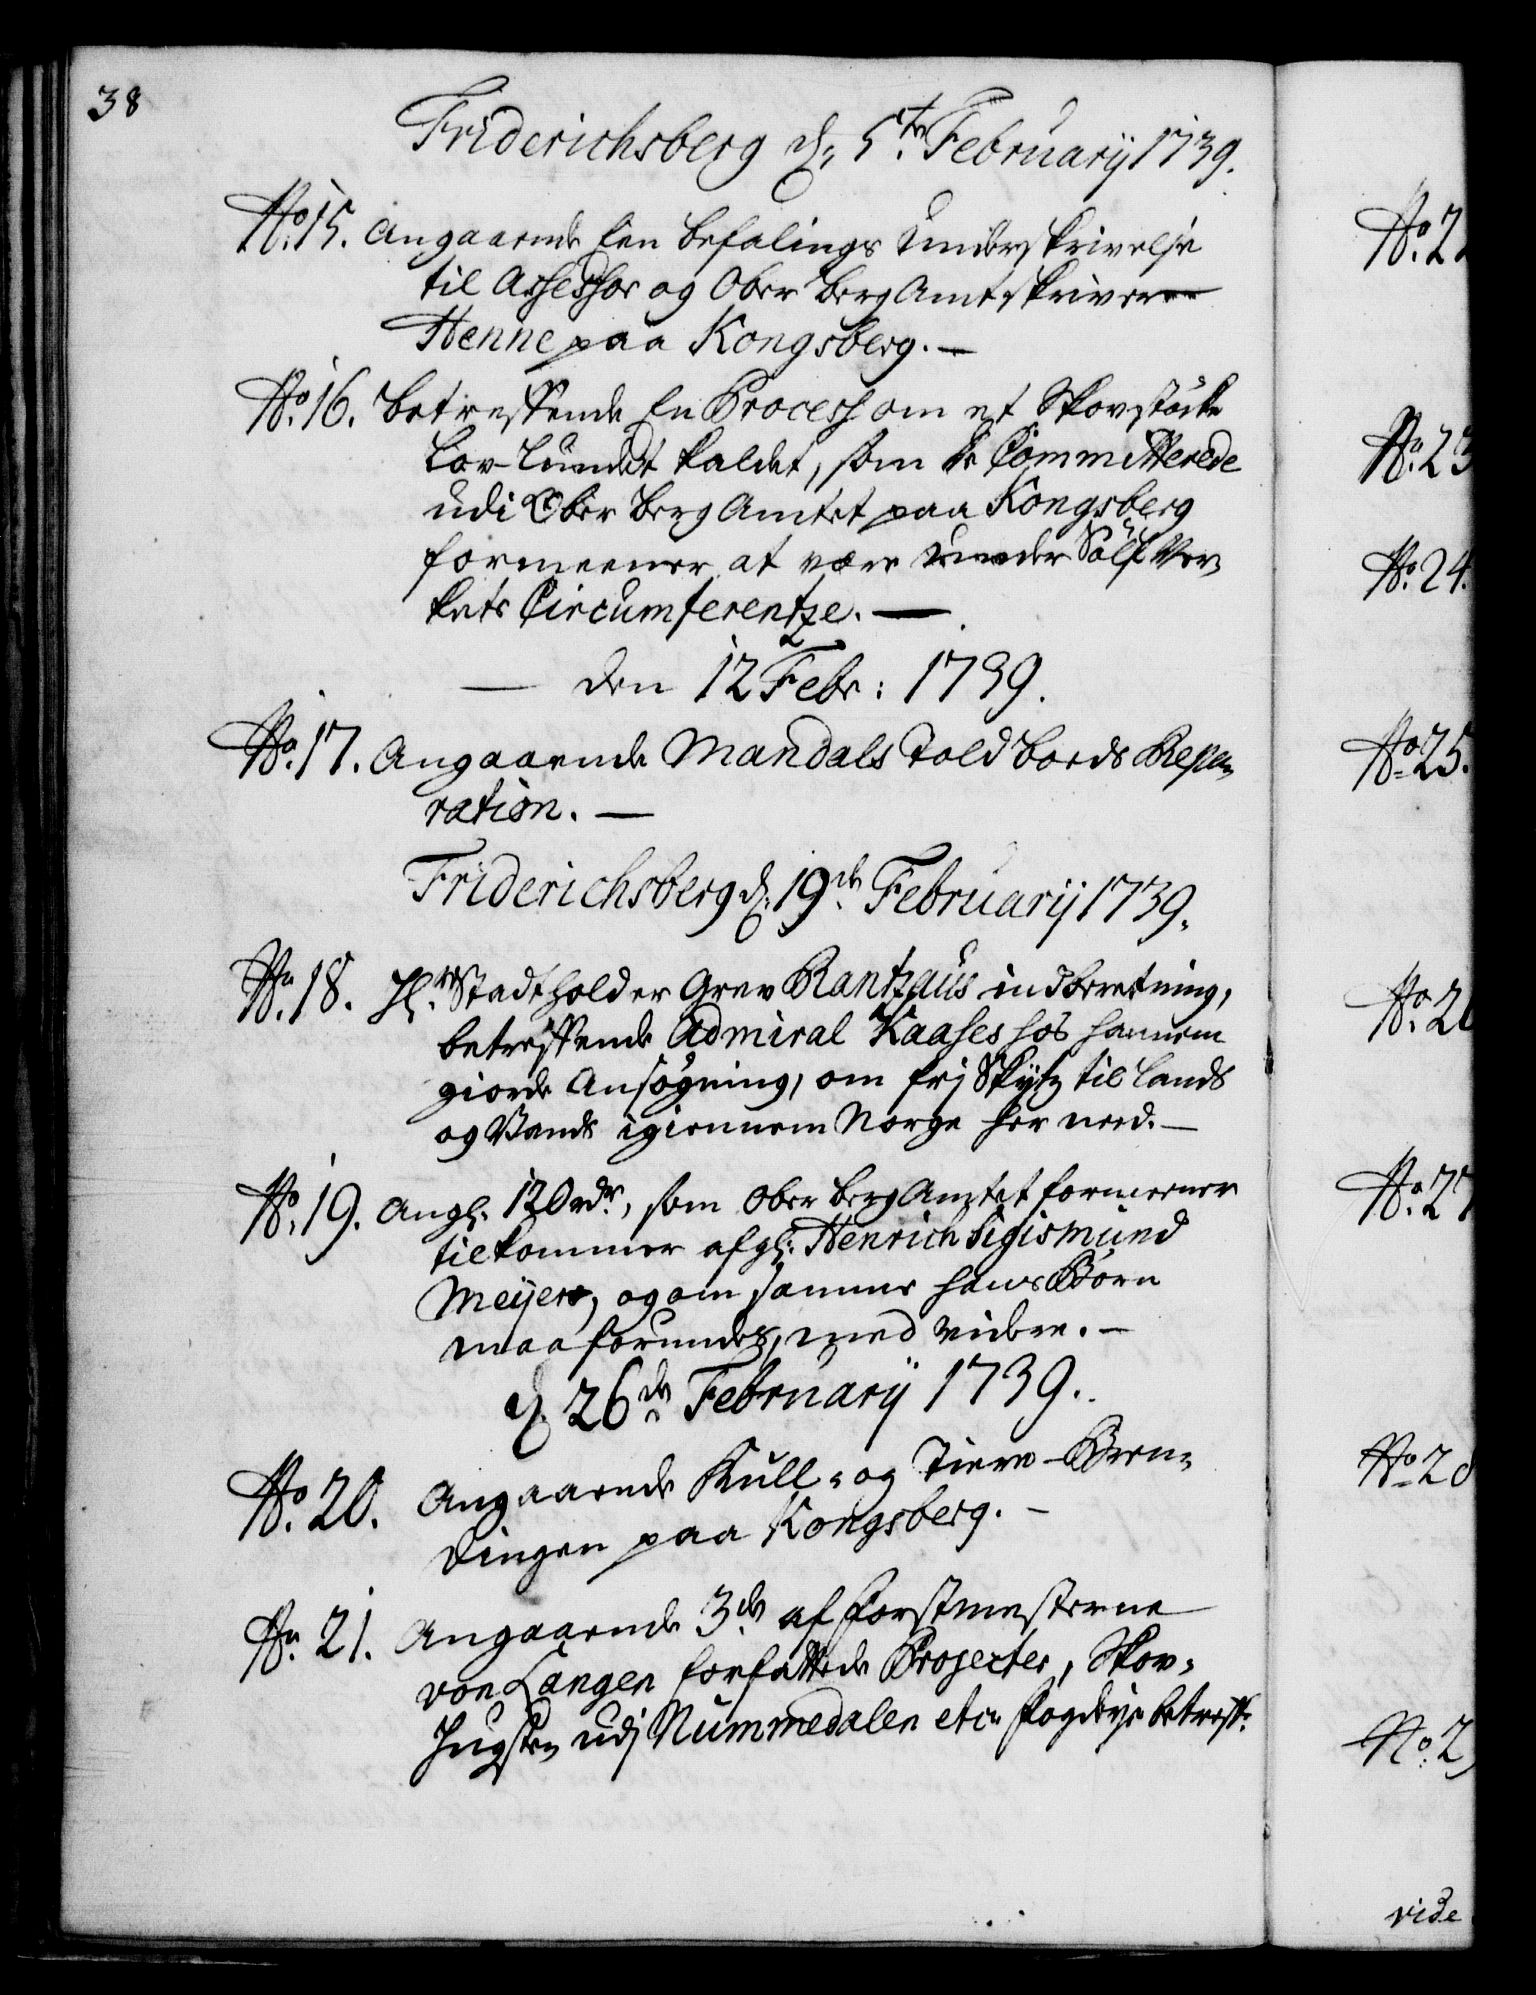 38
Friderichsberg d: 5te Februarij 1739.
No. 15. Angaaende een befalings underskrivelse
til Assessor og Ober Berg Amtskriver
Henne paa Kongsberg. —
No. 16. Betreffende En Process om et Skovstöcke
Lov-Lundet kaldet, som de Committerede
udi Ober Berg Amtet paa Kongsberg
formeener at være under Sölf Ver-
kets Circumferentze. —
— den 12 Febr: 1739.
No. 17. Angaaende Mandals Toldboeds Repa-
ration. —
Friderichsberg d: 19de Februarij 1739.
No. 18. Hr. Stadtholder Grev Rantzaus indberetning,
betreffende Admiral Kaases hos hannem
giorde Ansögning, om frj Skyts til Lands
og Vands igiennem Norge her need. —
No. 19. Angl: 120 rdr, som Ober Berg Amtet formeener
tilkommer afgl: Henrich Sigismund
Meijer, og om samme hans Börn
maa forundes, med videre. —
d. 26de Februarij 1739.
No. 20. Angaaende Kull- og Tiere-Bren-
dingen paa Kongsberg. —
No. 21. Angaaende 3de af Forstmesterne
von Langen forfattede Projecter, Skov-
Hugsten udj Nummedalen etc. Fogderje betreff:
No. 2
No. 23
No. 24.
No. 25.
No. 2
No. 27
No. 28
No. 2
vide